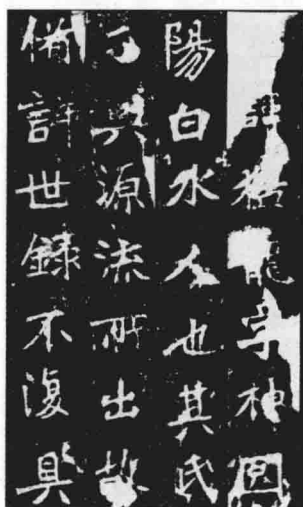 諱猛龍字神囧
陽白水人也其氏
分興源流所出故
備詳世録不復具